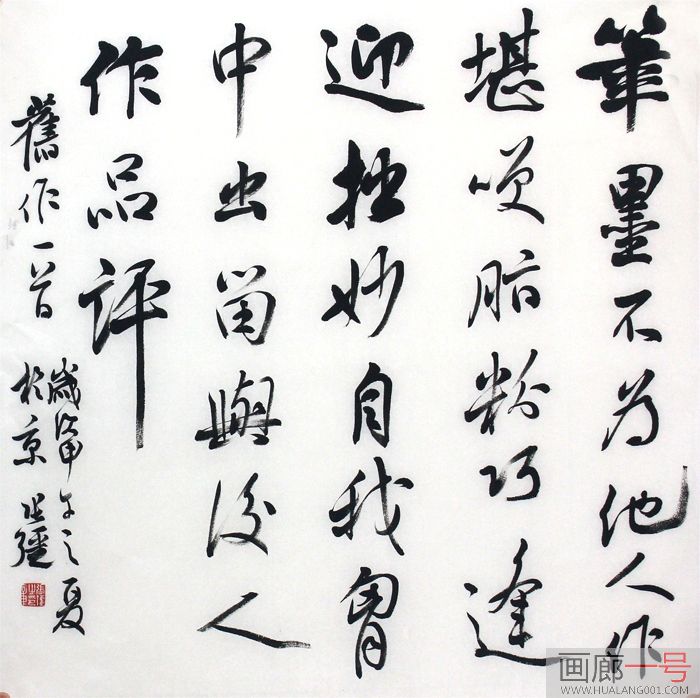 筆墨不为他人作
堪咲脂粉巧逢
迎拙妙自我胷
中出留與後人
作品評
舊作一首
歲次甲午之夏
於京
画廊一号
WWW.HUALANG001.COM